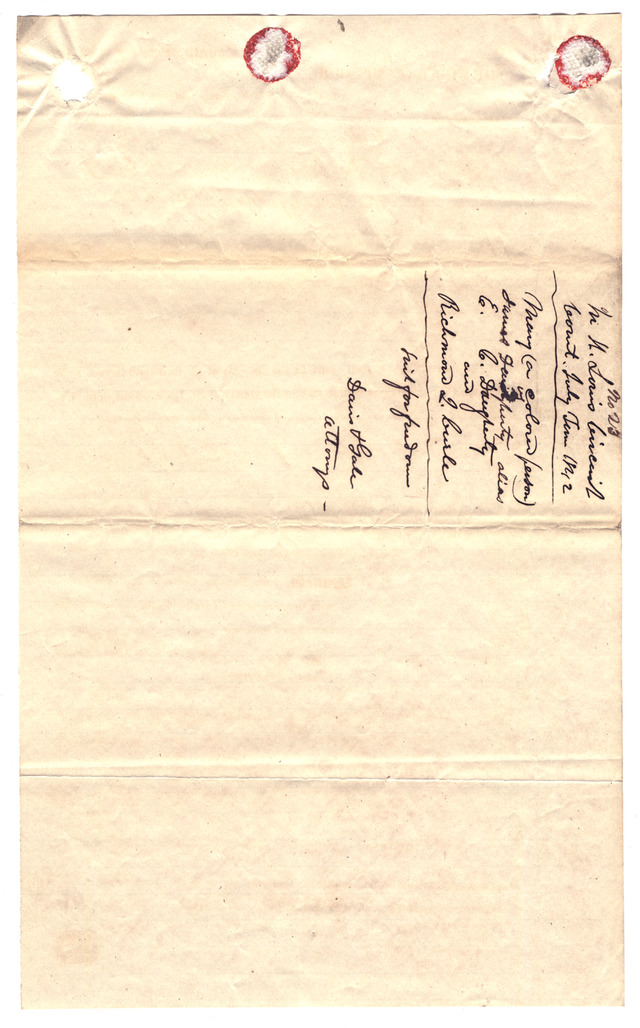 No 23
In St. Louis Circuit
Court. July Term 1842
Mary (a colored person)
vs
James Daugherty alias
E. C. Daugherty
and
Richmond J. Curle
suit for freedom
Davis & Gale
Attorneys